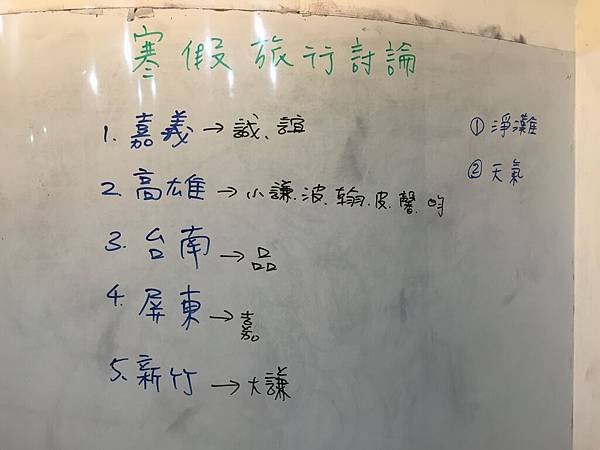 寒假旅行討論
1. 嘉義→誠、誼
2. 高雄→小謙.波.翰.皮.馨.昀
3. 台南→品
4. 屏東→嘉
5. 新竹→大謙
① 淨灘
② 天氣